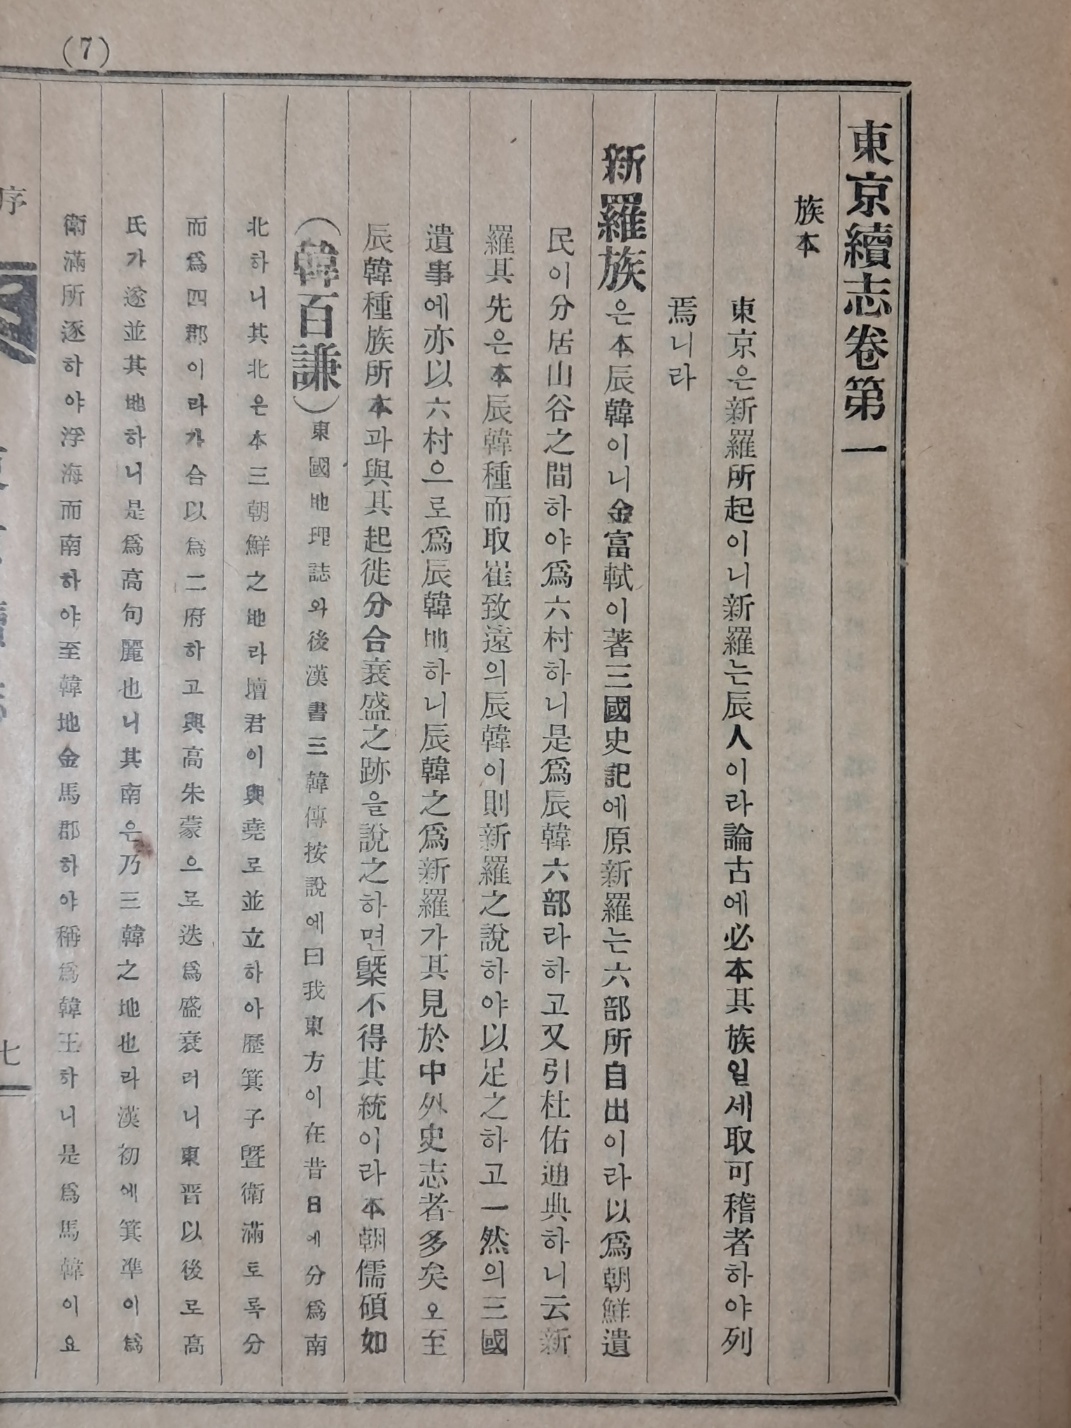 (7)
東京續志卷第一
族本
東京은新羅所起이니新羅는辰人이라論古에必本其族일세取可稽者하야列
焉니라
新羅族은本辰韓이니金富軾이著三國史記에原新羅는六部所自出이라以爲朝鮮遺
民이分居山谷之間하야爲六村하니是爲辰韓六部라하고又引杜佑通典하니云新
羅其先은本辰韓種而取崔致遠의辰韓이則新羅之說하야以足之하고一然의三國
遺事에亦以六村으로爲辰韓地하니辰韓之爲新羅가其見於中外史志者多矣오至
辰韓種族所本과與其起徙分合衰盛之跡을說之하면槩不得其統이라本朝儒碩如
(韓百謙)東國地理誌와後漢書三韓傳按說에曰我東方이在昔日에分爲南
北하니其北은本三朝鮮之地라壇君이與堯로並立하야歷箕子曁衛滿토록分
而爲四郡이라가合以爲二府하고與高朱蒙으로迭爲盛衰러니東晋以後로高
氏가遂並其地하니是爲高句麗也니其南은乃三韓之地也라漢初에箕準이爲
衛滿所逐하야浮海而南하야至韓地金馬郡하야稱爲韓王하니是爲馬韓이요
序
七